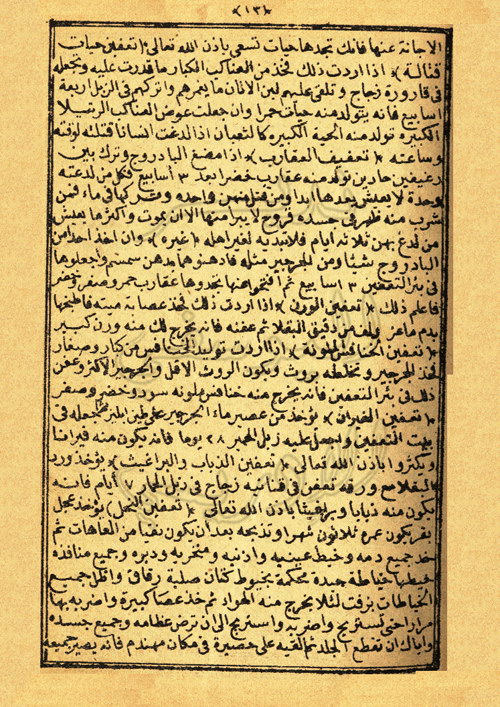 ﴿١٣﴾
الاجانة عنها فانك تجدها حيات تسعى باذن الله تعالى * (تعفين حيات
قتالة) * اذا اردت ذلك فخذ من العناكب الكبار ما قدرت عليه وتجعله
فى قارورة زجاج وتلقى عليهم لبن الاتان ما يغمرهم واتركهم فى الزبل اربعة
اسابيع فانه يتولد منه حيات حمر وان جعلت عوض العناكب الرتيلا
الكبيره تولد منه الحية الكبيره كالثعبان اذا لدغت انسانا قتلته لوقته
وساعته * (تعفيف العقارب) * اذا مضغ البادروج وترك بين
رغيفين حارين تولد منه عقارب خضر بعد ٣ أسابيع فكل من لدغته
وحدة لا يعش بعدها ابدا ومن قتل منهن واحده وتركها فى ماء فمن
شرب منه ظهر فى جسده قروح لا يبرا منها الا ان يموت واكثر ما يعش
من لدغ بهن ثلاثه ايام فلا تبديه لغير اهله * (غيره) * وان اخذ احد من
البادروج شيئا ومن الجرجير مثله فادهنوهما بدهن سمسم واجعلوها
فى بئر التعفين ٣ اسابيع ثم افتحوا عنها تجدوها عقارب حمر وصفر وخضر
فاعلم ذلك * (تعفين الوزن) * اذا اردت ذلك فخذ عصابة ميته فاطبخها
بدم ماعز ولف من دقيق الباقلا ثم عفنه فانه يخرج لك منه وزن كبير
* (تعفين الخنافس الملونة) * اذا اردت توليد الخنافس من كبار وصغار
فخذ الجرجير وتخلطه بروث ويكون الروث الاقل والجرجير الاكثر وعفن
ذلك فى بئر التعفين فانه يخرج منه خنافس ملونه سود وخضر وصفر
* (تعفين الفيران) * يؤخذ من عصير ماء الجرجير على طين ابليز تجعله فى
بيت التعفين وتجعل عليه زبل الحمير ٢٨ يوما فانه يكون منه فيرانا
وتكثر باذن الله تعالى * (تعفين الذباب والبراغيث) * يؤخذ ورد
الباقلا مع ورقه تعفن فى قنانيه زجاج فى زبل الحمار ٧ أيام فانه
يكون منه ذبابا وبراغيثا باذن الله تعالى * (تعفين النحل) يؤخذ عجل
بقر يكون عمره ثلاثون شهرا وتذبحه بعد ان يكون نقيا من العاهات ثم
خذ جميع دمه وخيط عينيه واذنيه ومنخريه ودبره وجميع منافذه
خيطها خياطة جيدة محكمة بخيوط كتان صلبة رقاق واطل جميع
الخياطات بزفت لئلا يخرج منه الهواء ثم خذ عصا كبيرة واضربه بها
مرارا حتى تستريح واضربه واستريح الى ان ترض عظامه وجميع جسده
واياك ان تقطع الجلد ثم القيه على حصيرة فى مكان مهندم فانه يصير جميعه